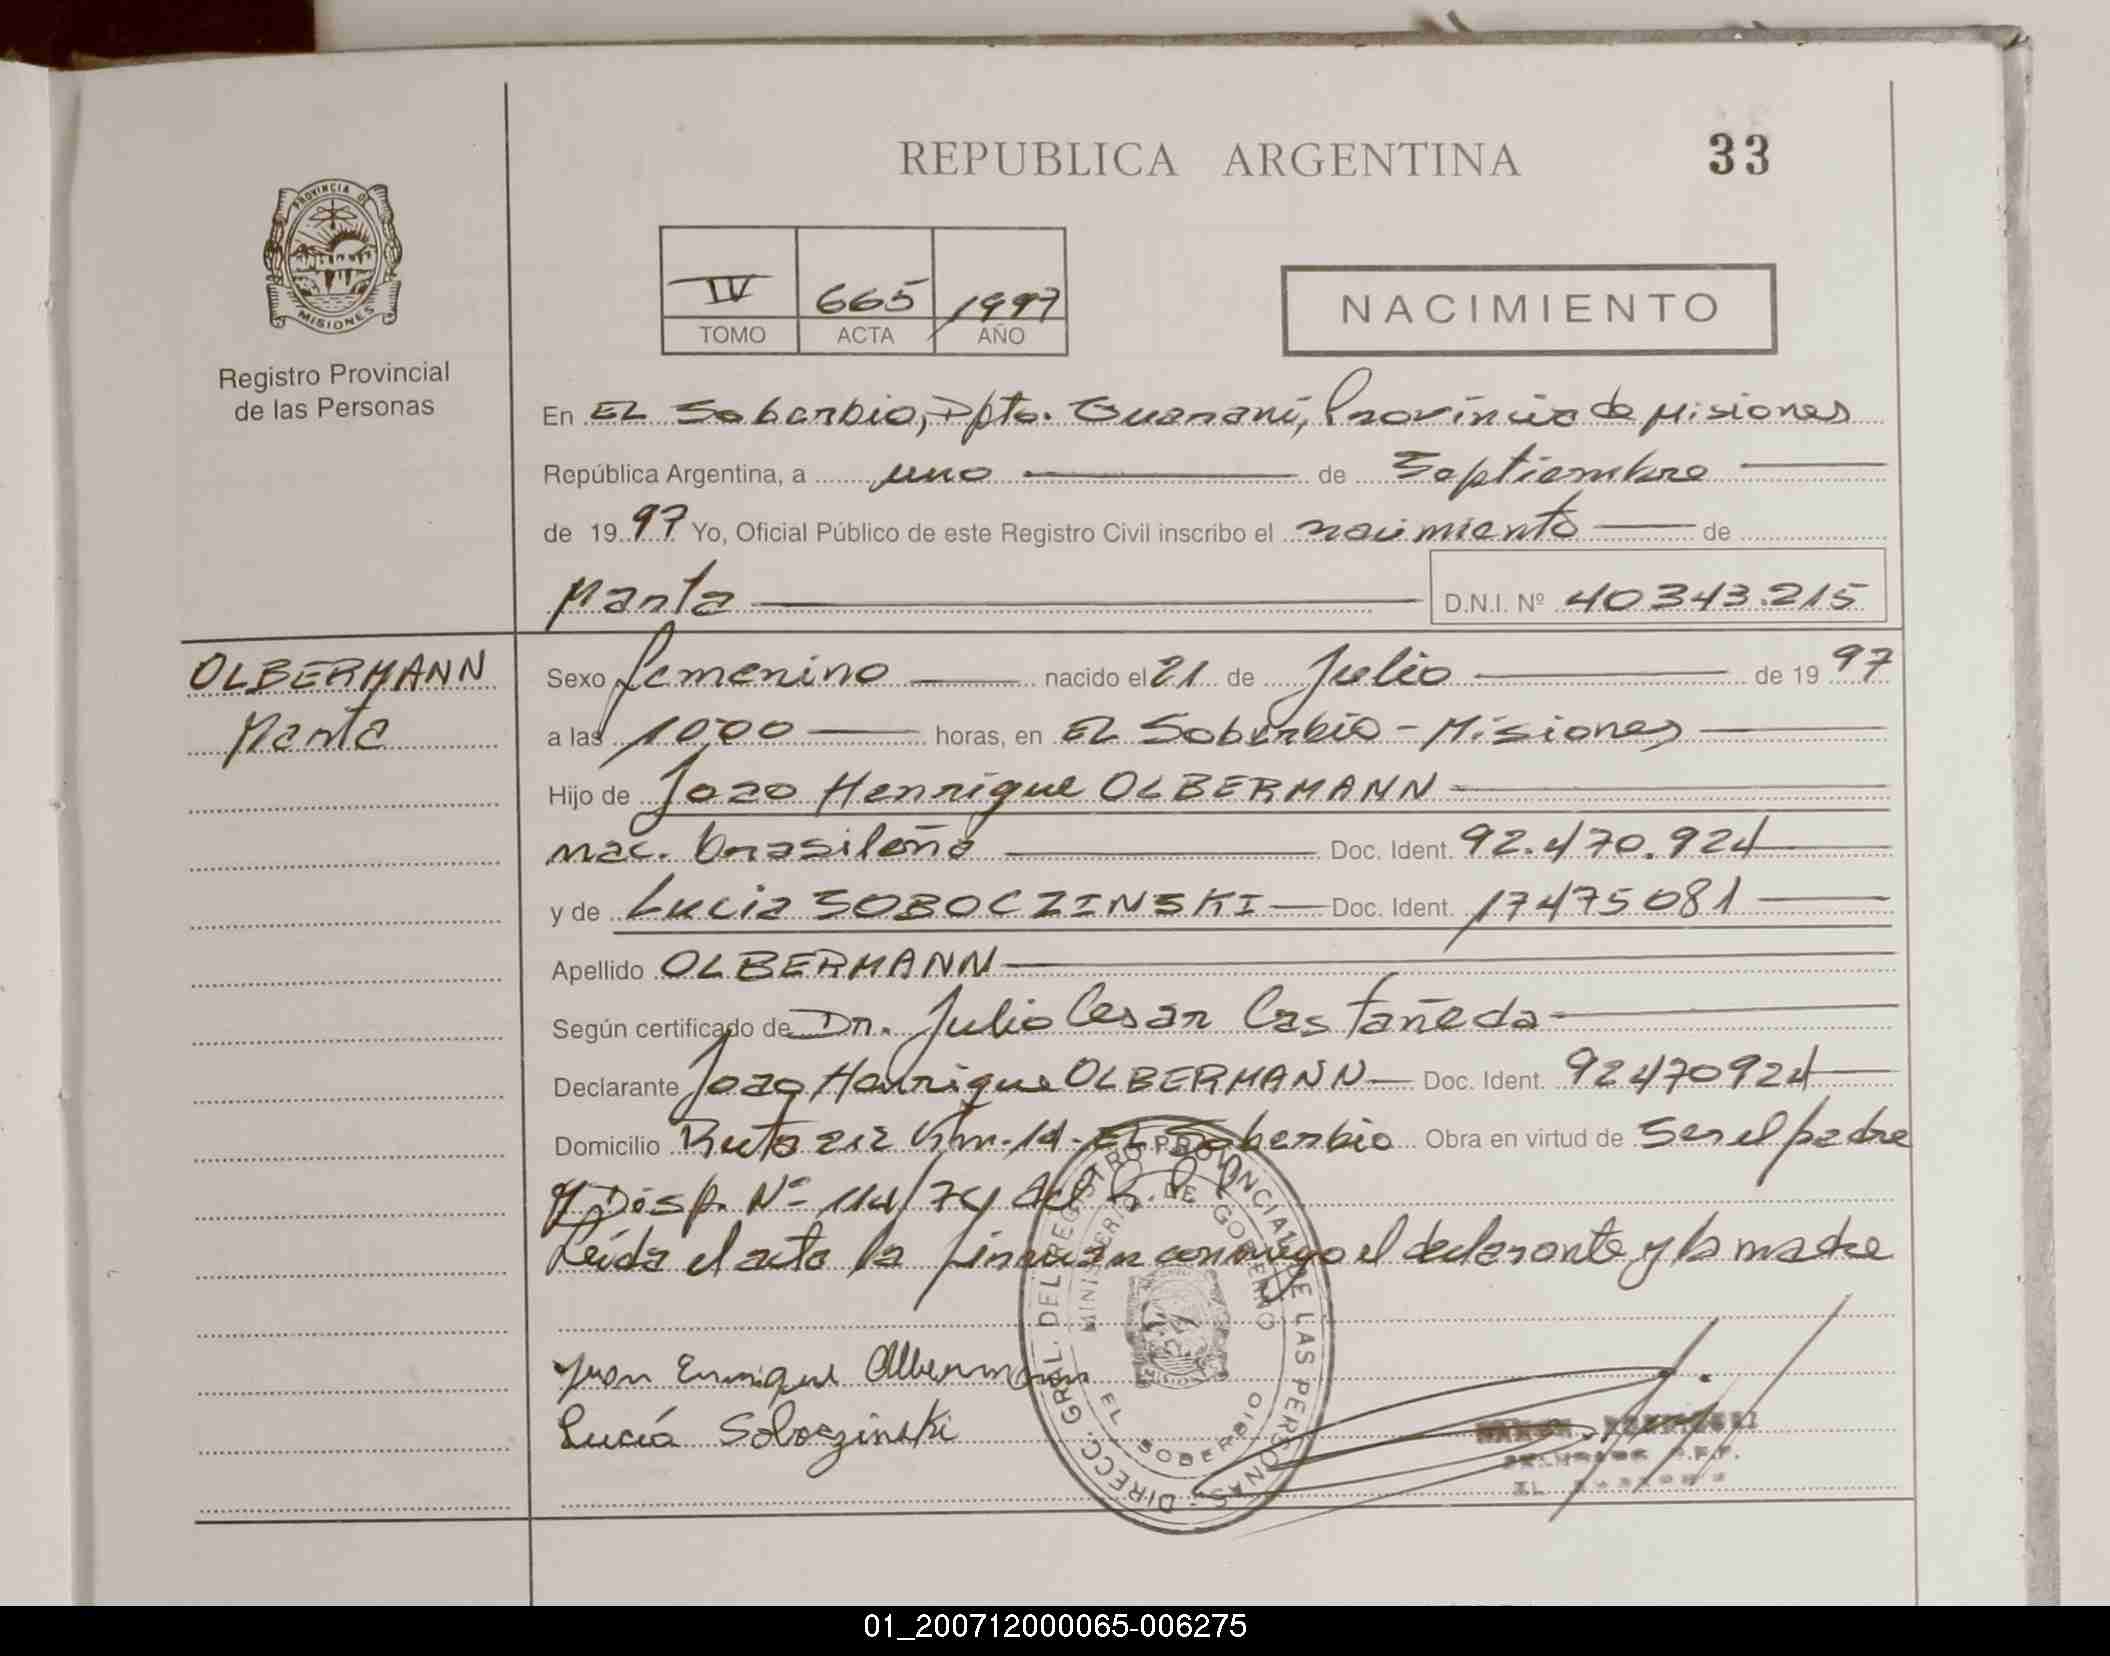 REPUBLICA ARGENTINA
33
PROVINCIA DE
MISIONES
Registro Provincial
de las Personas
IV 665 1997
TOMO ACTA AÑO
NACIMIENTO
En EL Soberbio, Dpto. Guaraní, Provincia de Misiones
República Argentina, a uno de Septiembre
de 1997 Yo, Oficial Público de este Registro Civil inscribo el nacimiento de
Marta D.N.I. Nº 40343.215
OLBERMANN
Marta
Sexo femenino nacido el 21 de Julio de 1997
a las 10:00 horas, en EL Soberbio - Misiones
Hijo de Joao Henrique OLBERMANN
nac. brasileña Doc. Ident. 92.470.924
y de Lucia SOBOCZINSKI Doc. Ident. 17475081
Apellido OLBERMANN
Según certificado de Dr. Julio Cesar Castañeda
Declarante Joao Henrique OLBERMANN Doc. Ident. 92470924
Domicilio Ruta 212 Km. 14 - EL Soberbio Obra en virtud de Ser el padre
y Disp. Nº 114/74 del R.P.P.
Leída el acta la firman conmigo el declarante y la madre
Juan Enrique Olbermann
Lucía Soboczinski
DIRECC. GRAL. DEL REGISTRO PROVINCIAL DE LAS PERSONAS
MINISTERIO DE GOBIERNO
EL SOBERBIO
01_200712000065-006275